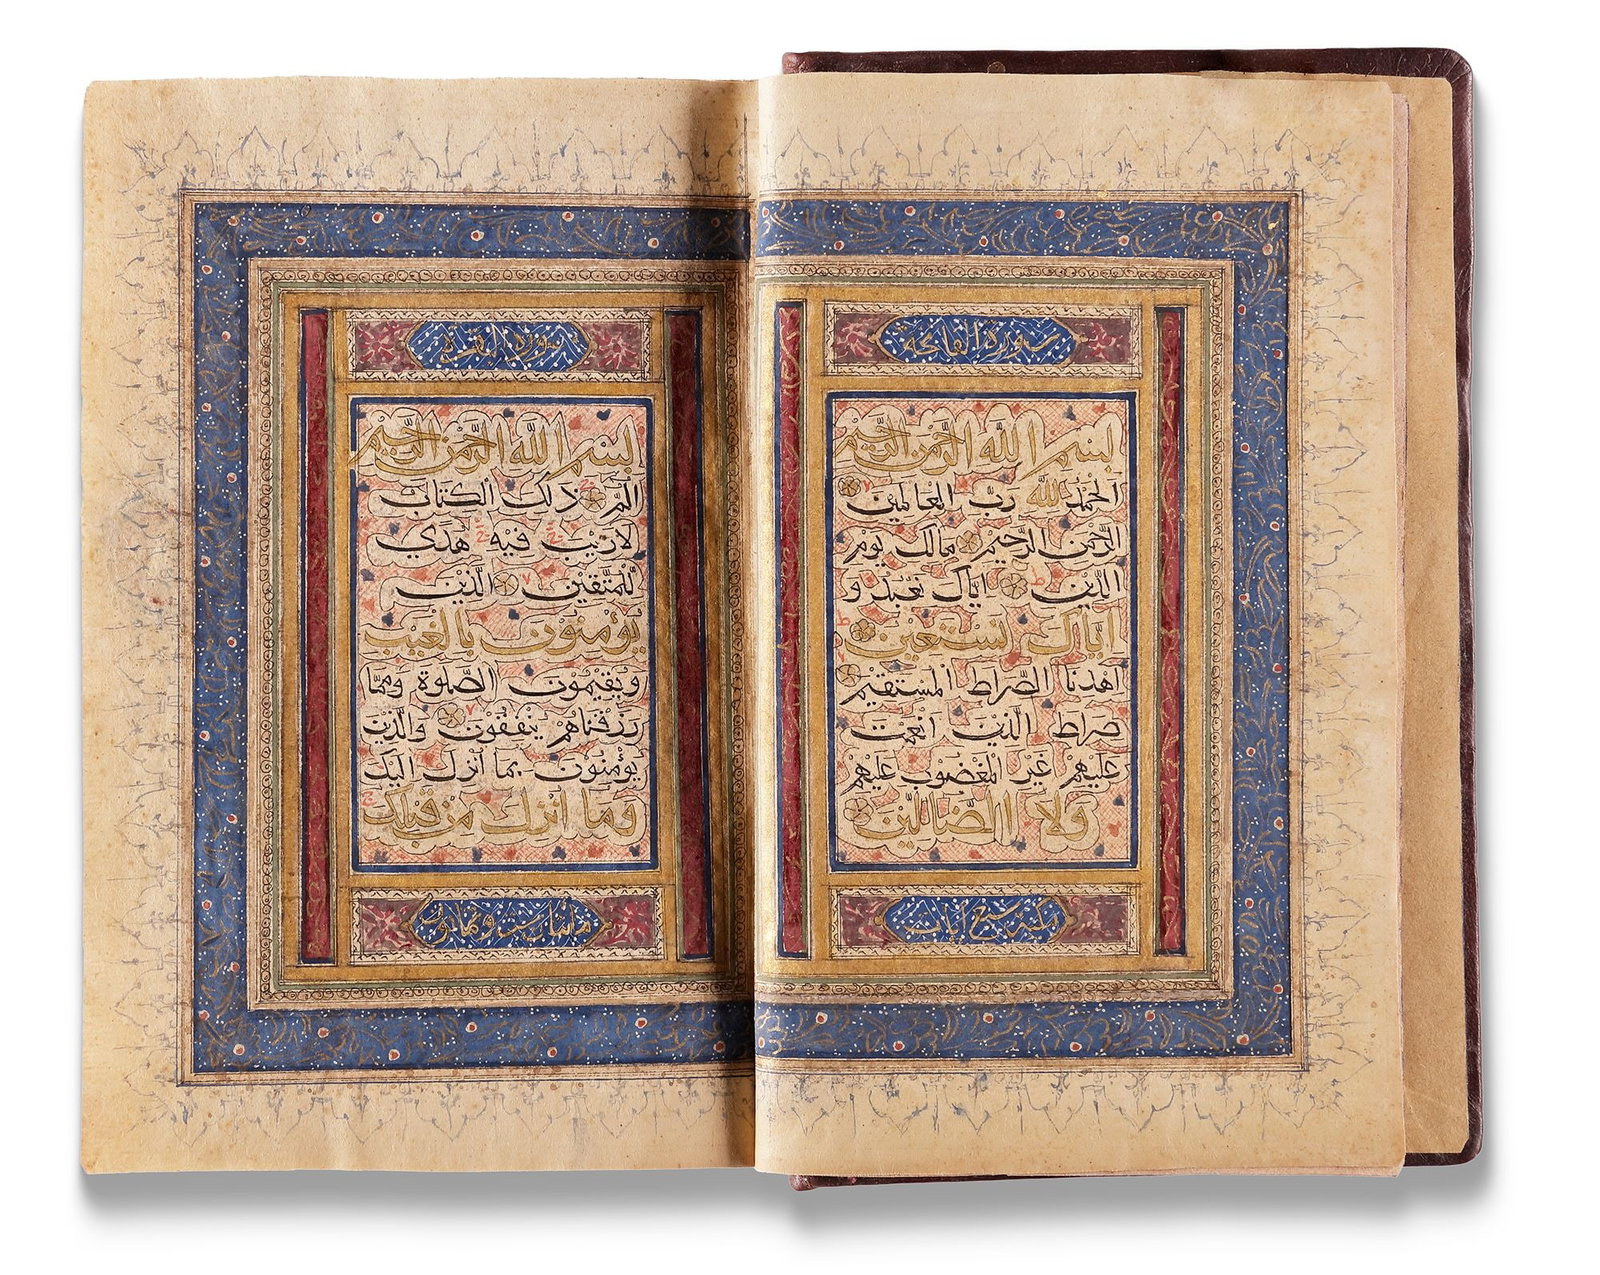 سورة الفاتحة
بسم الله الرحمن الرحيم
الحمد لله رب العالمين
الرحمن الرحيم مالك يوم
الدين اياك نعبد و
اياك نستعين
اهدنا الصراط المستقيم
صراط الذين انعمت
عليهم غير المغضوب عليهم
ولا الضالين
مكية سبع ايات
سورة البقرة
بسم الله الرحمن الرحيم
الم ذلك الكتاب
لا ريب فيه هدى
للمتقين الذين
يؤمنون بالغيب
ويقيمون الصلوة ومما
رزقناهم ينفقون والذين
يؤمنون بما انزل اليك
وما انزل من قبلك
مأتان وثمانون